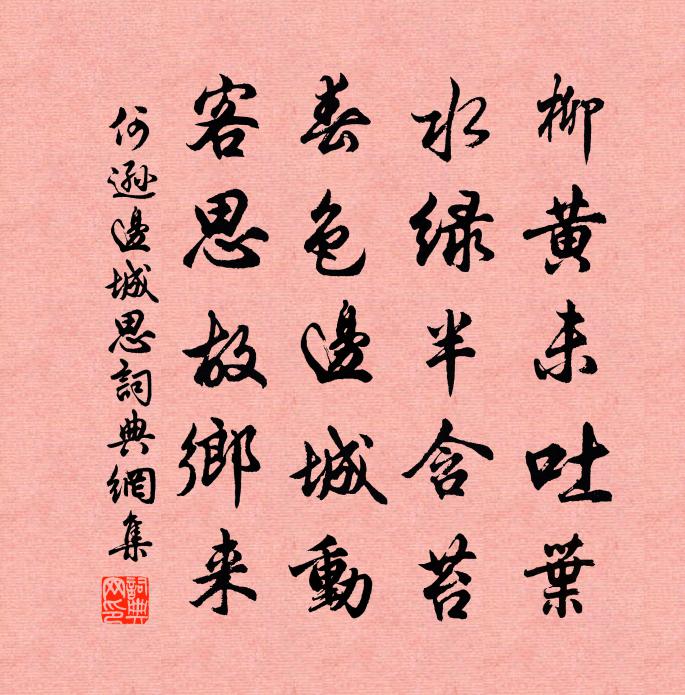 柳黄未吐葉
水緑半含苔
春色邊城動
客思故鄉来
何遜邊城思詞典網集
詞典网印